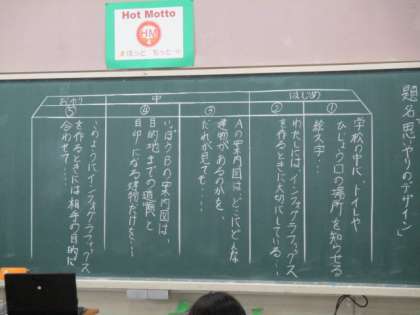 Hot Motto
HM
ほっと もっと
題名「思いやりのデザイン」
はじめ
中
おわり
①
学校の中に、トイレや
ひじょう口の場所を知らせる
絵文字…
②
わたしは、インフォグラフィックス
を作るときに大切にしている…
③
Aの案内図は、どこにどんな
建物があるのかを、
だれが見ても…
④
いっぽう、Bの案内図は、
目的地までの道順と
目印になる建物だけ…
⑤
このようにインフォグラフィックス
を作るときには、相手の目的に
合わせて…